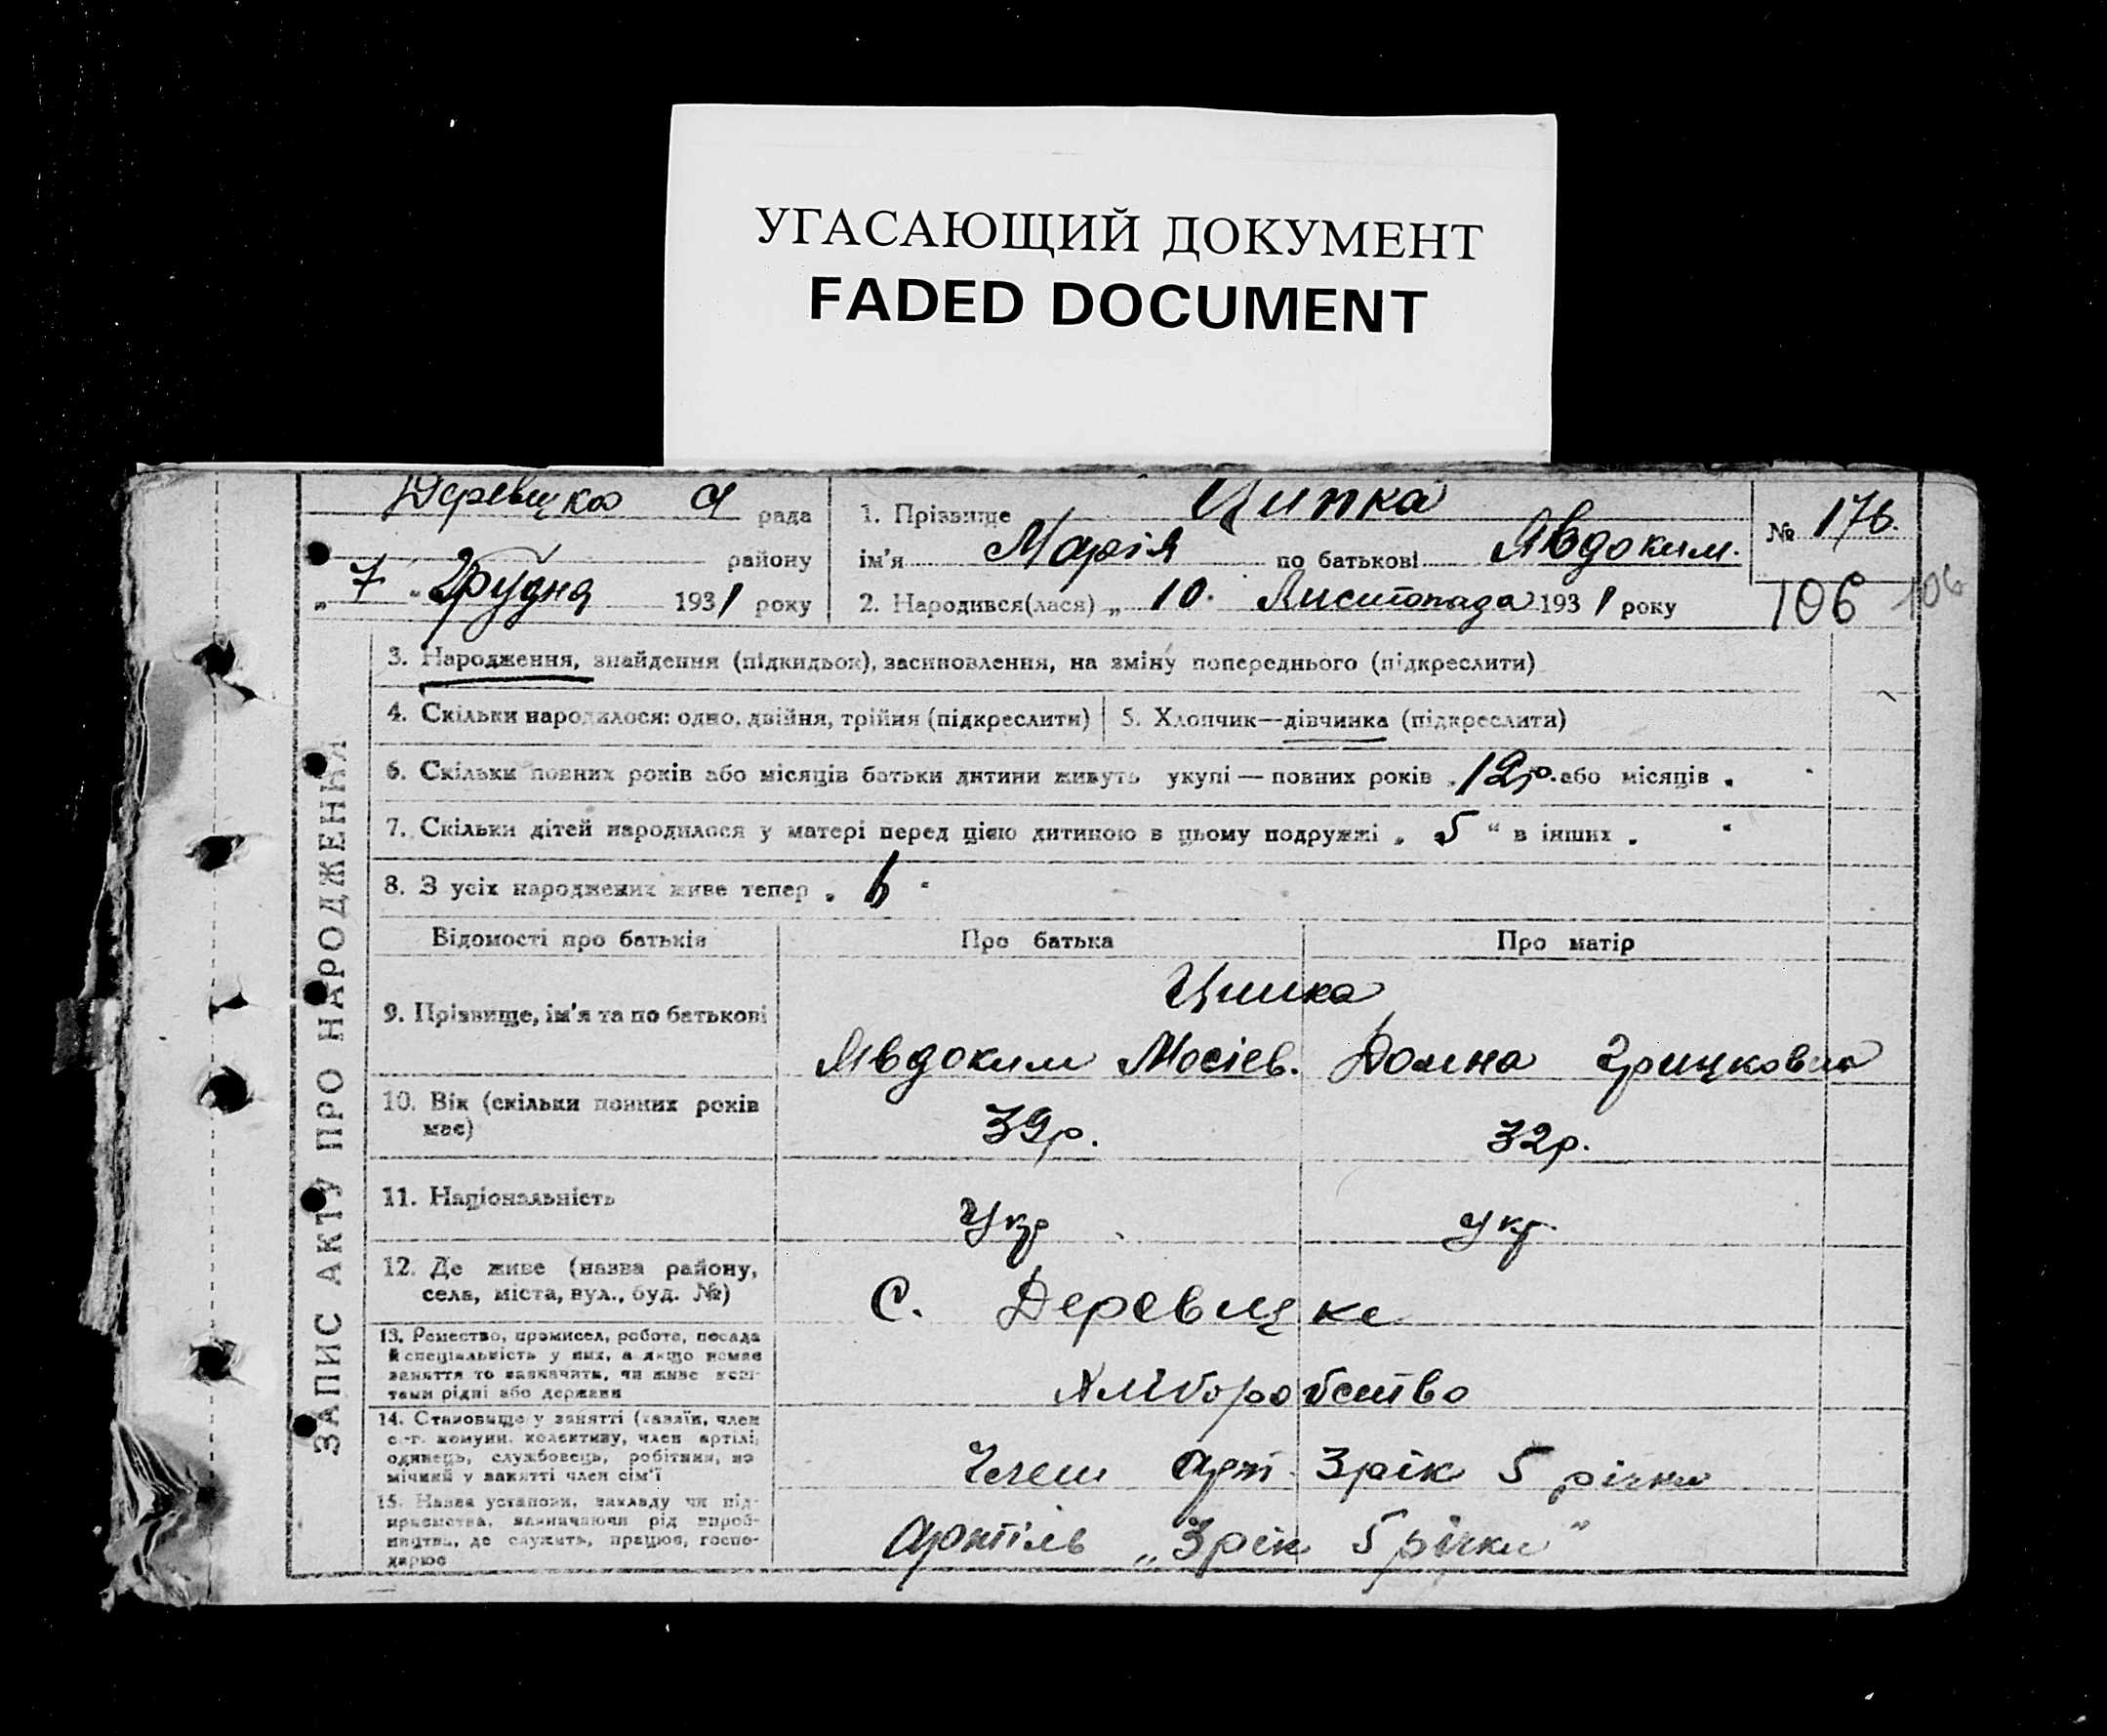 УГАСАЮЩИЙ ДОКУМЕНТ
FADED DOCUMENT
Деревицка рада
району
„ 7 " Грудня 1931 року
1. Прізвище Ципка
ім'я Марія по батькові Явдоким.
2. Народився(лася) „ 10. Листопада 1931 року
№ 176.
106 106
ЗАПИС АКТУ ПРО НАРОДЖЕННЯ
3. Народження, знайдення (підкидьок), засиновлення, на зміну попереднього (підкреслити)
4. Скільки народилося: одно, двійня, трійня (підкреслити)
5. Хлопчик—дівчинка (підкреслити)
6. Скільки повних років або місяців батьки дитини живуть укупі — повних років „ 12р. або місяців „
7. Скільки дітей народилося у матері перед цією дитиною в цьому подружжі „ 5 " в інших „ "
8. З усіх народжених живе тепер „ 6 "
Відомості про батьків Про батька Про матір
9. Прізвище, ім'я та по батькові
Ципка
Явдоким Мосіев. Домна Грицковна
10. Вік (скільки повних років має)
39р. 32р.
11. Національність
Укр Укр.
12. Де живе (назва району,
села, міста, вул., буд. №)
С. Деревицке
13. Ремество, промисел, робота, посада
й спеціяльність у них, а якщо немає
заняття то зазначити, чи живе кош-
тами рідні або держави
Хліборобство
14. Становище у занятті (хазяїн, член
с.-г. комуни, колективу, член артілі,
одинець, службовець, робітник, по
мічний у занятті член сім'ї
Член арт. 3 рік 5 річки
15. Назва установи, закладу чи під-
приємства, зазначаючи рід вироб-
ництва, де служить, працює, госпо-
дарює
Артіль „3 рік 5 річки"